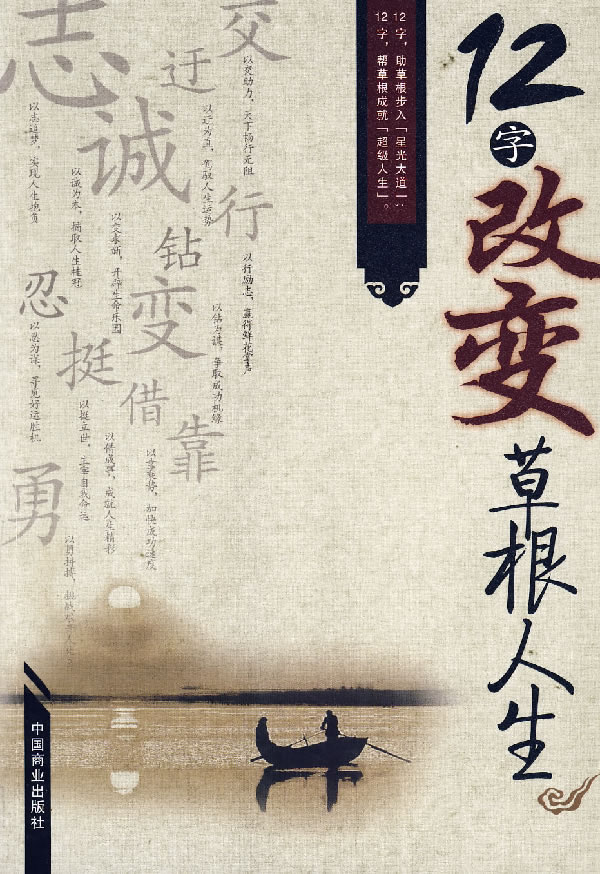 12字
改变
草根人生
12字，助草根步入「星光大道」；
12字，帮草根成就「超级人生」。
交
以交助力，天下畅行无阻
行
以行励志，赢得鲜花掌声
迂
以迂为直，驾驭人生运势
钻
以钻为谋，争取成功机缘
靠
以靠乘势，加快成功速度
诚
以诚为本，摘取人生桂冠
变
以变求新，开辟生命乐园
借
以借成事，成就人生精彩
志
以志追梦，实现人生抱负
挺
以挺立世，主宰自我命运
忍
以忍为谋，寻觅好运胜机
勇
以勇拼搏，挑战
中国商业出版社